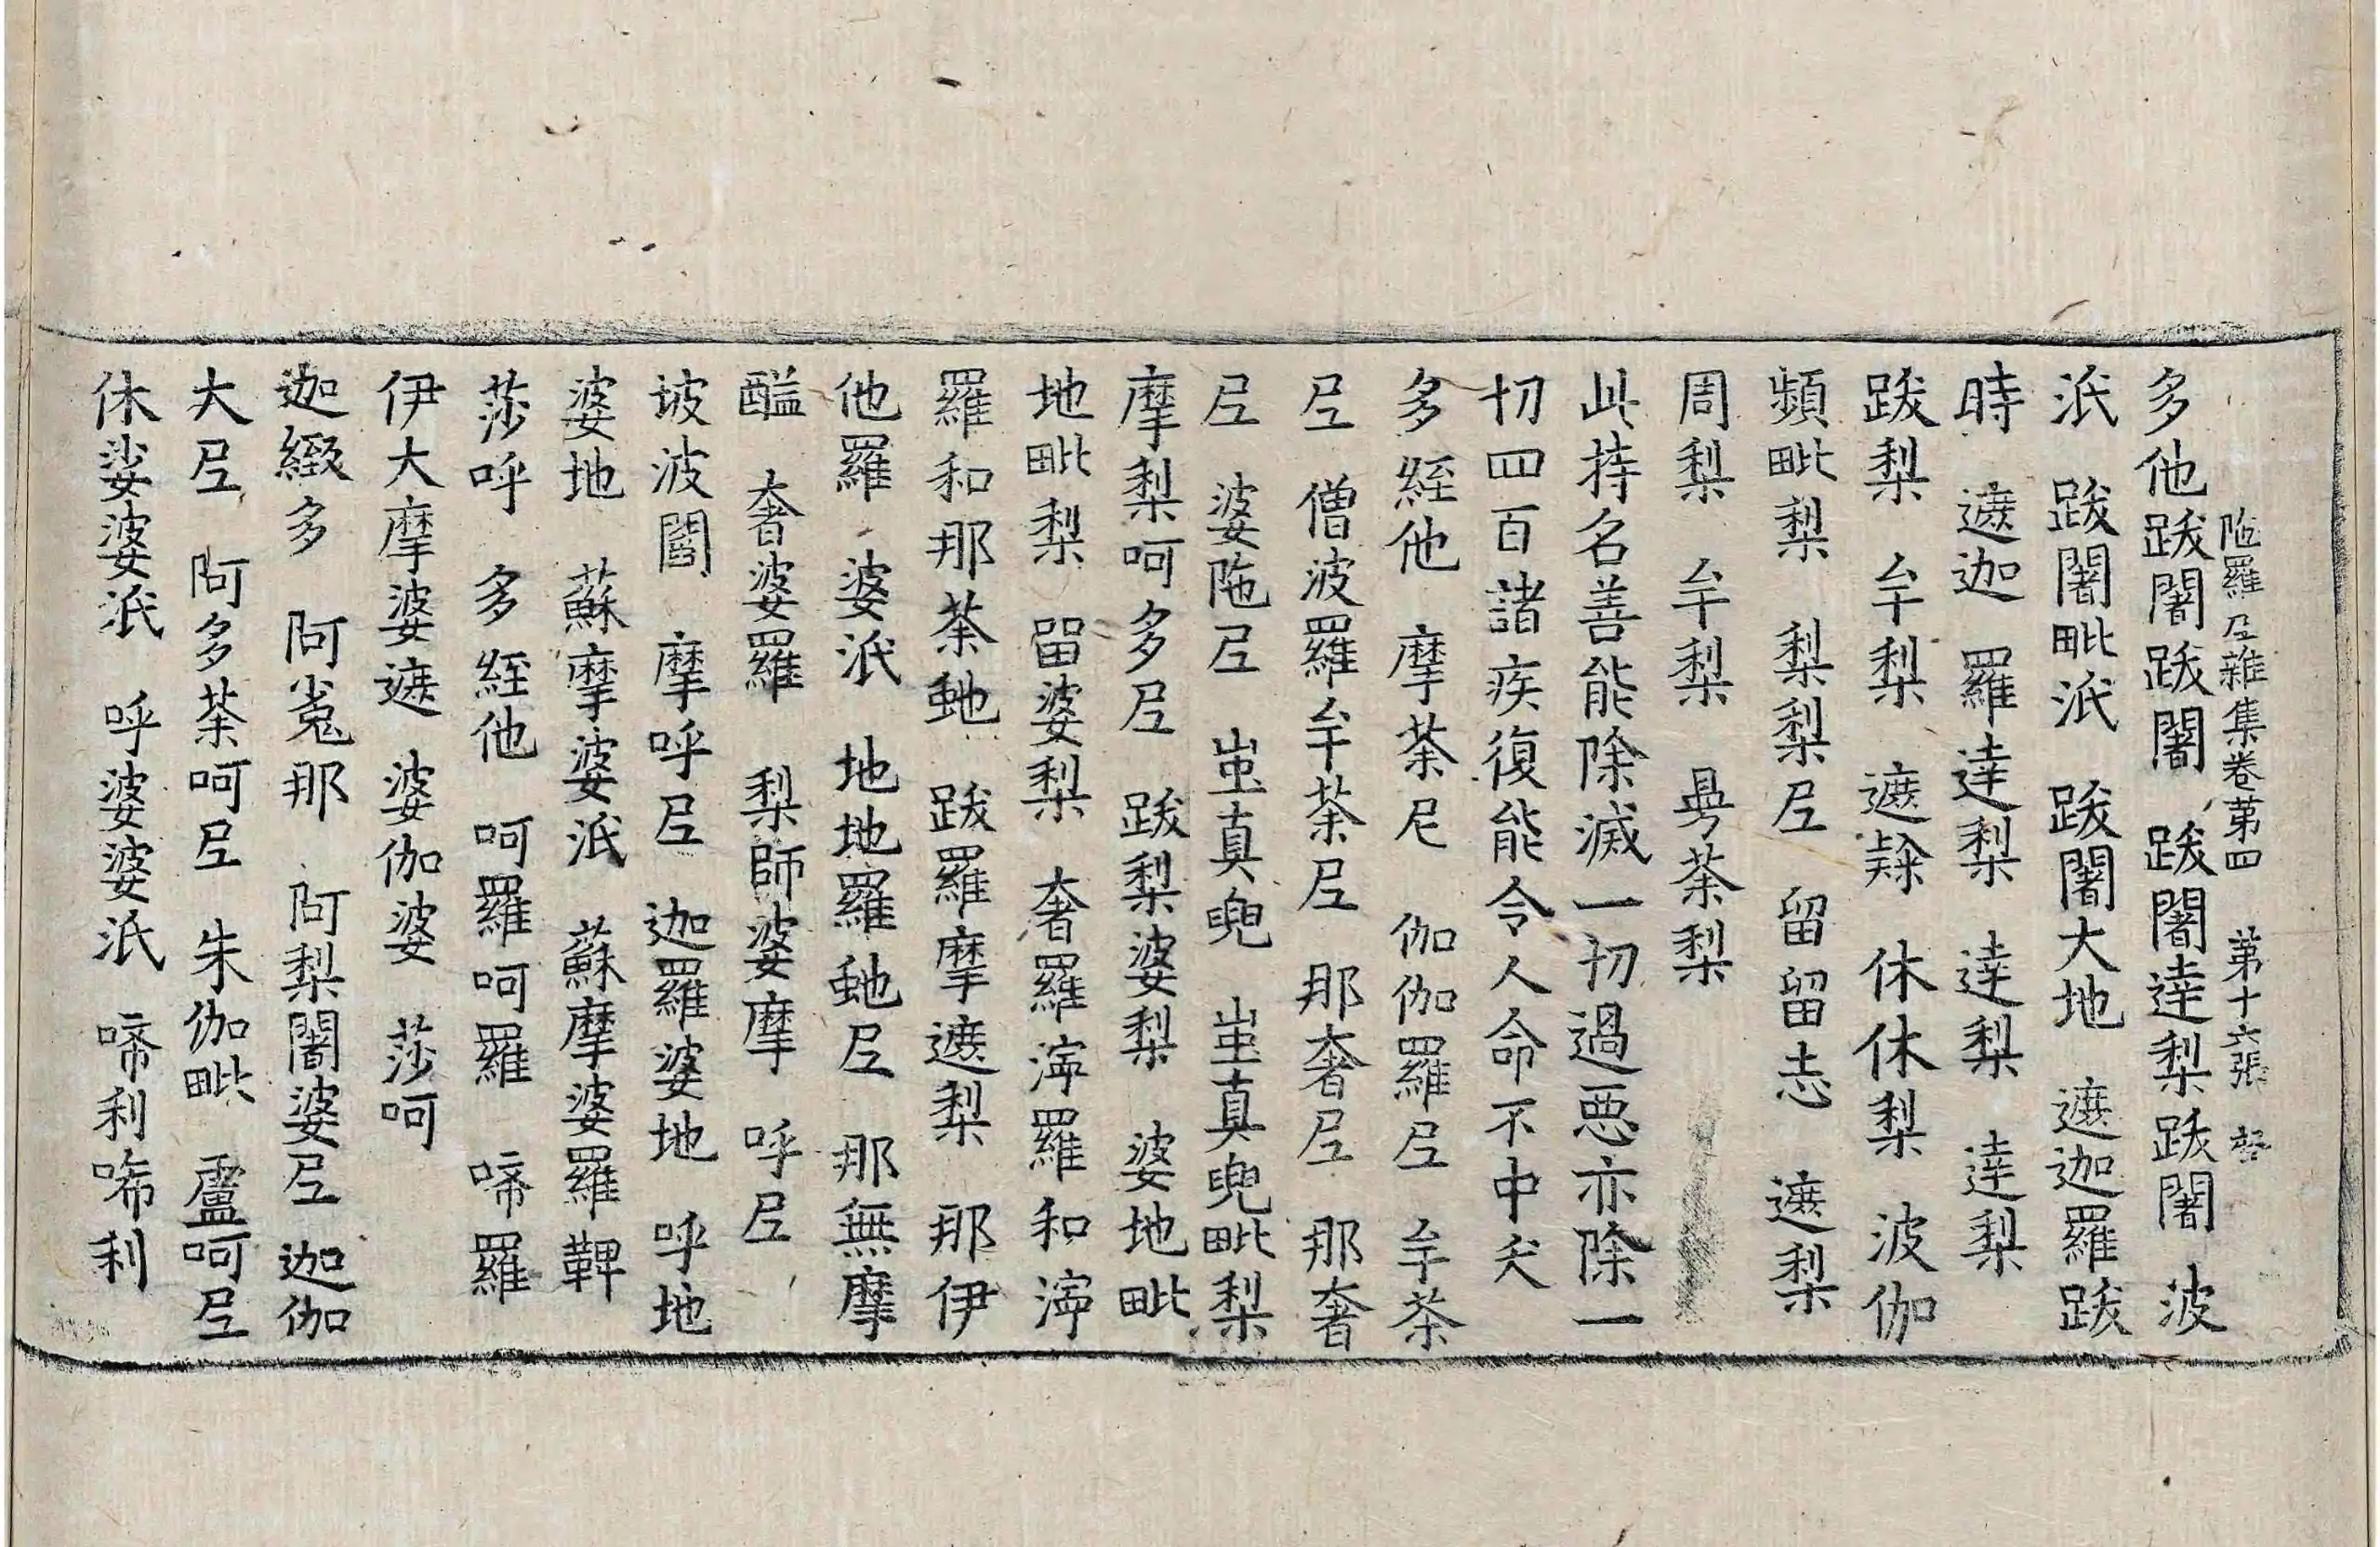 陁羅尼雜集卷第四 第十六張
多他跋闍跋闍 跋闍達梨跋闍 波
泜 跋闍毗泜 跋闍大地 遮迦羅跋
時 遮迦 羅達梨 達梨 達梨
跋梨 牟梨 遮 休休梨 波伽
頻毗梨 梨梨尼 留留志 遮梨
周梨 牟梨 荼梨
此持名善能除滅一切過惡亦除一
切四百諸疾復能令人命不中夭
多絰他 摩荼尼 伽伽羅尼 牟荼
尼 僧波羅牟荼尼 那奢尼 那奢
尼 婆陁尼 蚩真兜 蚩真兜毗梨
摩梨呵多尼 跋梨婆梨 婆地毗
地毗梨 留婆梨 奢羅渧羅和渧
羅和那荼虵 跋羅摩遮梨 那伊
他羅 婆泜 地地羅虵尼 那無摩
醯 奢婆羅 梨師婆摩 呼尼
波闍 摩呼尼 迦羅婆地 呼地
婆地 蘇摩婆泜 蘇摩婆羅鞞
莎呼 多絰他 呵羅呵羅 啼羅
伊大摩婆遮 婆伽婆 莎呵
迦緻多 阿㝹那 阿梨闍婆尼 迦伽
大尼 阿多荼呵尼 朱伽毗 盧呵尼
休娑婆泜 呼婆婆泜 啼利唏利